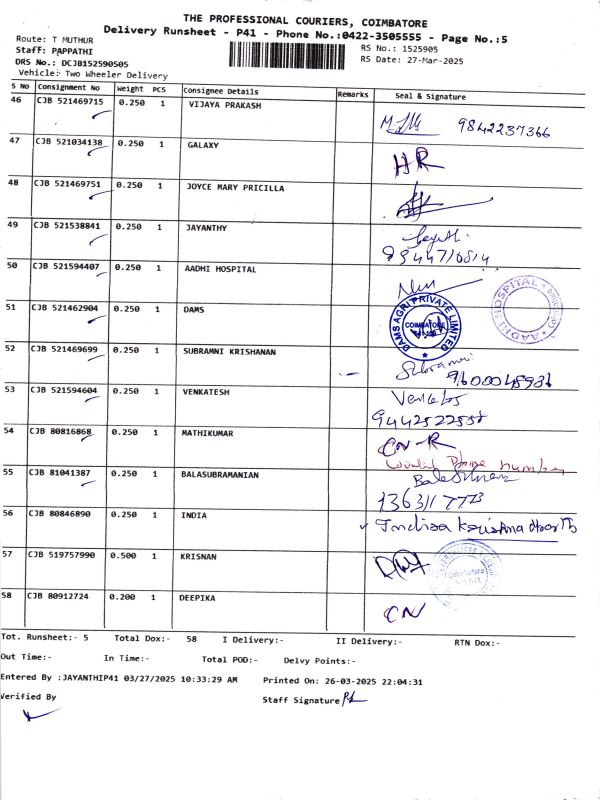 THE PROFESSIONAL COURIERS, COIMBATORE
Delivery Runsheet - P41 - Phone No.:0422-3505555 - Page No.:5
Route: T MUTHUR
RS No.: 1525905
Staff: PAPPATHI
RS Date: 27-Mar-2025
DRS No.: DCJB152590505
Vehicle:- Two Wheeler Delivery
S No Consignment No Weight PCS Consignee Details Remarks Seal & Signature
46 CJB 521469715 0.250 1 VIJAYA PRAKASH
9842237366
47 CJB 521034138 0.250 1 GALAXY
HR
48 CJB 521469751 0.250 1 JOYCE MARY PRICILLA
49 CJB 521538841 0.250 1 JAYANTHY
50 CJB 521594407 0.250 1 AADHI HOSPITAL
AADHI HOSPITAL
51 CJB 521462904 0.250 1 DAMS
DAMS AGRI PRIVATE LIMITED
COIMBATORE
52 CJB 521469699 0.250 1 SUBRAMNI KRISHANAN
53 CJB 521594604 0.250 1 VENKATESH
9442522558
54 CJB 80816868 0.250 1 MATHIKUMAR
CN-R
Phone number
55 CJB 81041387 0.250 1 BALASUBRAMANIAN
56 CJB 80846890 0.250 1 INDIA
India Krishna
57 CJB 519757990 0.500 1 KRISNAN
58 CJB 80912724 0.200 1 DEEPIKA
CN
Tot. Runsheet:- 5 Total Dox:- 58 I Delivery:- II Delivery:- RTN Dox:-
Out Time:- In Time:- Total POD:- Delvy Points:-
Entered By :JAYANTHIP41 03/27/2025 10:33:29 AM Printed On: 26-03-2025 22:04:31
Verified By Staff Signature